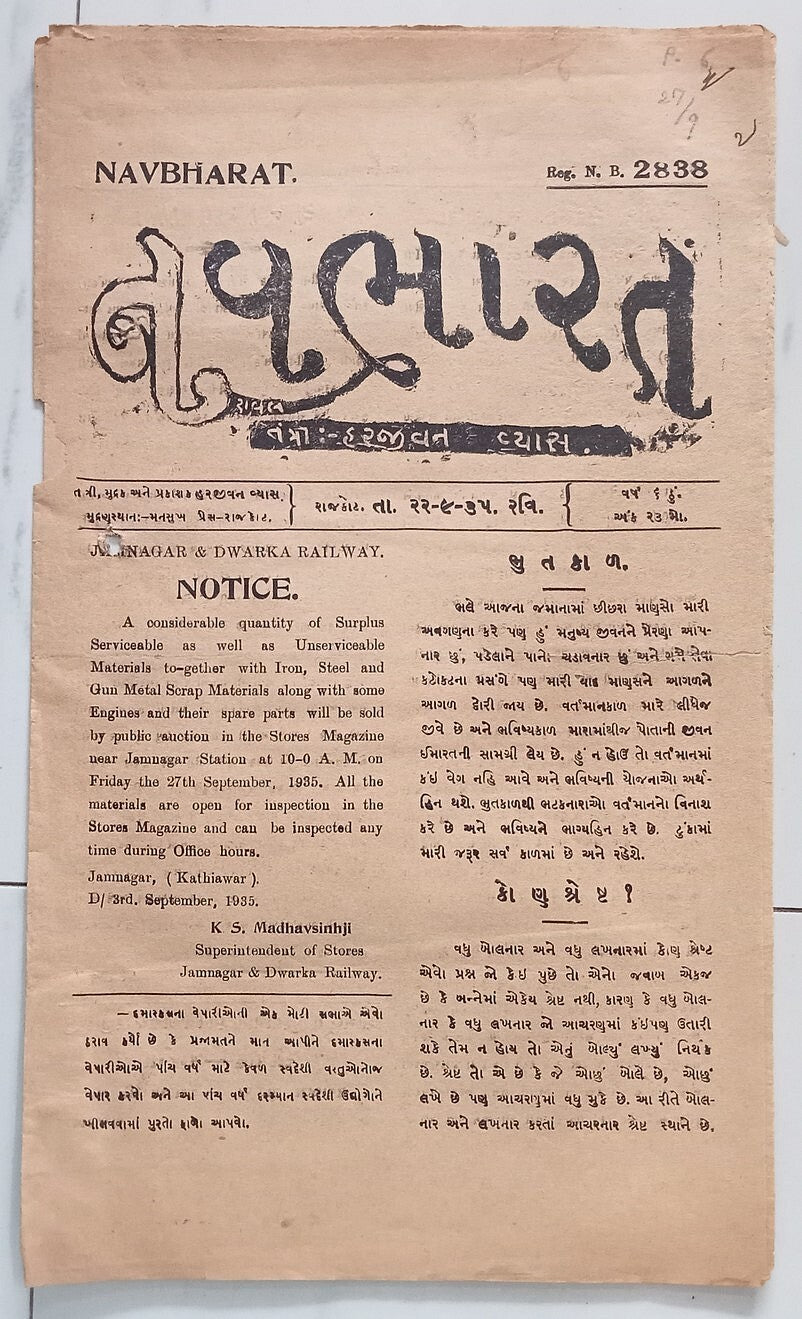 P. 6
27/9
NAVBHARAT.
Reg. N. B. 2838
નવભારત
રાવલ
તંત્રી :- હરજીવન વ્યાસ.
તંત્રી, મુદ્રક અને પ્રકાશક હરજીવન વ્યાસ.
મુદ્રણસ્થાનઃ—મનસુખ પ્રેસ-રાજકોટ.
રાજકોટ. તા. ૨૨-૯-૩૫. રવિ.
વર્ષ ૬ ઠું.
અંક ૨૩ મો.
JAMNAGAR & DWARKA RAILWAY.
NOTICE.
A considerable quantity of Surplus
Serviceable as well as Unserviceable
Materials to-gether with Iron, Steel and
Gun Metal Scrap Materials along with some
Engines and their spare parts will be sold
by public auction in the Stores Magazine
near Jamnagar Station at 10-0 A. M. on
Friday the 27th September, 1935. All the
materials are open for inspection in the
Stores Magazine and can be inspected any
time during Office hours.
Jamnagar, ( Kathiawar ).
D/ 3rd. September, 1935.
K S. Madhavsinhji
Superintendent of Stores
Jamnagar & Dwarka Railway.
—દમાસ્કસના વેપારીઓની એક મોટી સભાએ એવો
ઠરાવ કર્યો છે કે પ્રજામતને માન આપીને દમાસ્કસના
વેપારીઓએ પાંચ વર્ષ માટે કેવળ સ્વદેશી વસ્તુઓનોજ
વેપાર કરવો અને આ પાંચ વર્ષ દરમ્યાન સ્વદેશી ઉદ્યોગોને
ખીલવવામાં પુરતો ફાળો આપવો.
ભુતકાળ.
ભલે આજના જમાનામાં છીછરા માણસો મારી
અવગણના કરે પણ હું મનુષ્ય જીવનને પ્રેરણા આપ-
નાર છું, પડેલાને પાનો ચડાવનાર છું અને ગમે તેવા
કટોકટના પ્રસંગે પણ મારી યાદ માણસને આગળને
આગળ દોરી જાય છે. વર્તમાનકાળ મારે લીધેજ
જીવે છે અને ભવિષ્યકાળ મારામાંથીજ પોતાની જીવન
ઈમારતની સામગ્રી લેય છે. હું ન હોઉં તો વર્તમાનમાં
કંઇ વેગ નહિ આવે અને ભવિષ્યની યોજનાઓ અર્થ-
હિન થશે. ભુતકાળથી ભટકનારાઓ વર્તમાનનો વિનાશ
કરે છે અને ભવિષ્યને ભાગ્યહિન કરે છે. ટુંકામાં
મારી જરૂર સર્વ કાળમાં છે અને રહેશે.
કોણ શ્રેષ્ટ ?
વધુ બોલનાર અને વધુ લખનારમાં કોણ શ્રેષ્ટ
એવો પ્રશ્ન જો કોઇ પુછે તો એનો જવાબ એકજ
છે કે બન્નેમાં એકેય શ્રેષ્ટ નથી, કારણ કે વધુ બોલ-
નાર કે વધુ લખનાર જો આચરણમાં કંઇપણ ઉતારી
શકે તેમ ન હોય તો એનું બોલ્યું લખ્યું નિર્થક
છે. શ્રેષ્ટ તો એ છે કે જે ઓછું બોલે છે, ઓછું
લખે છે પણ આચરણમાં વધુ મુકે છે. આ રીતે બોલ-
નાર અને લખનાર કરતાં આચરનાર શ્રેષ્ટ સ્થાને છે.